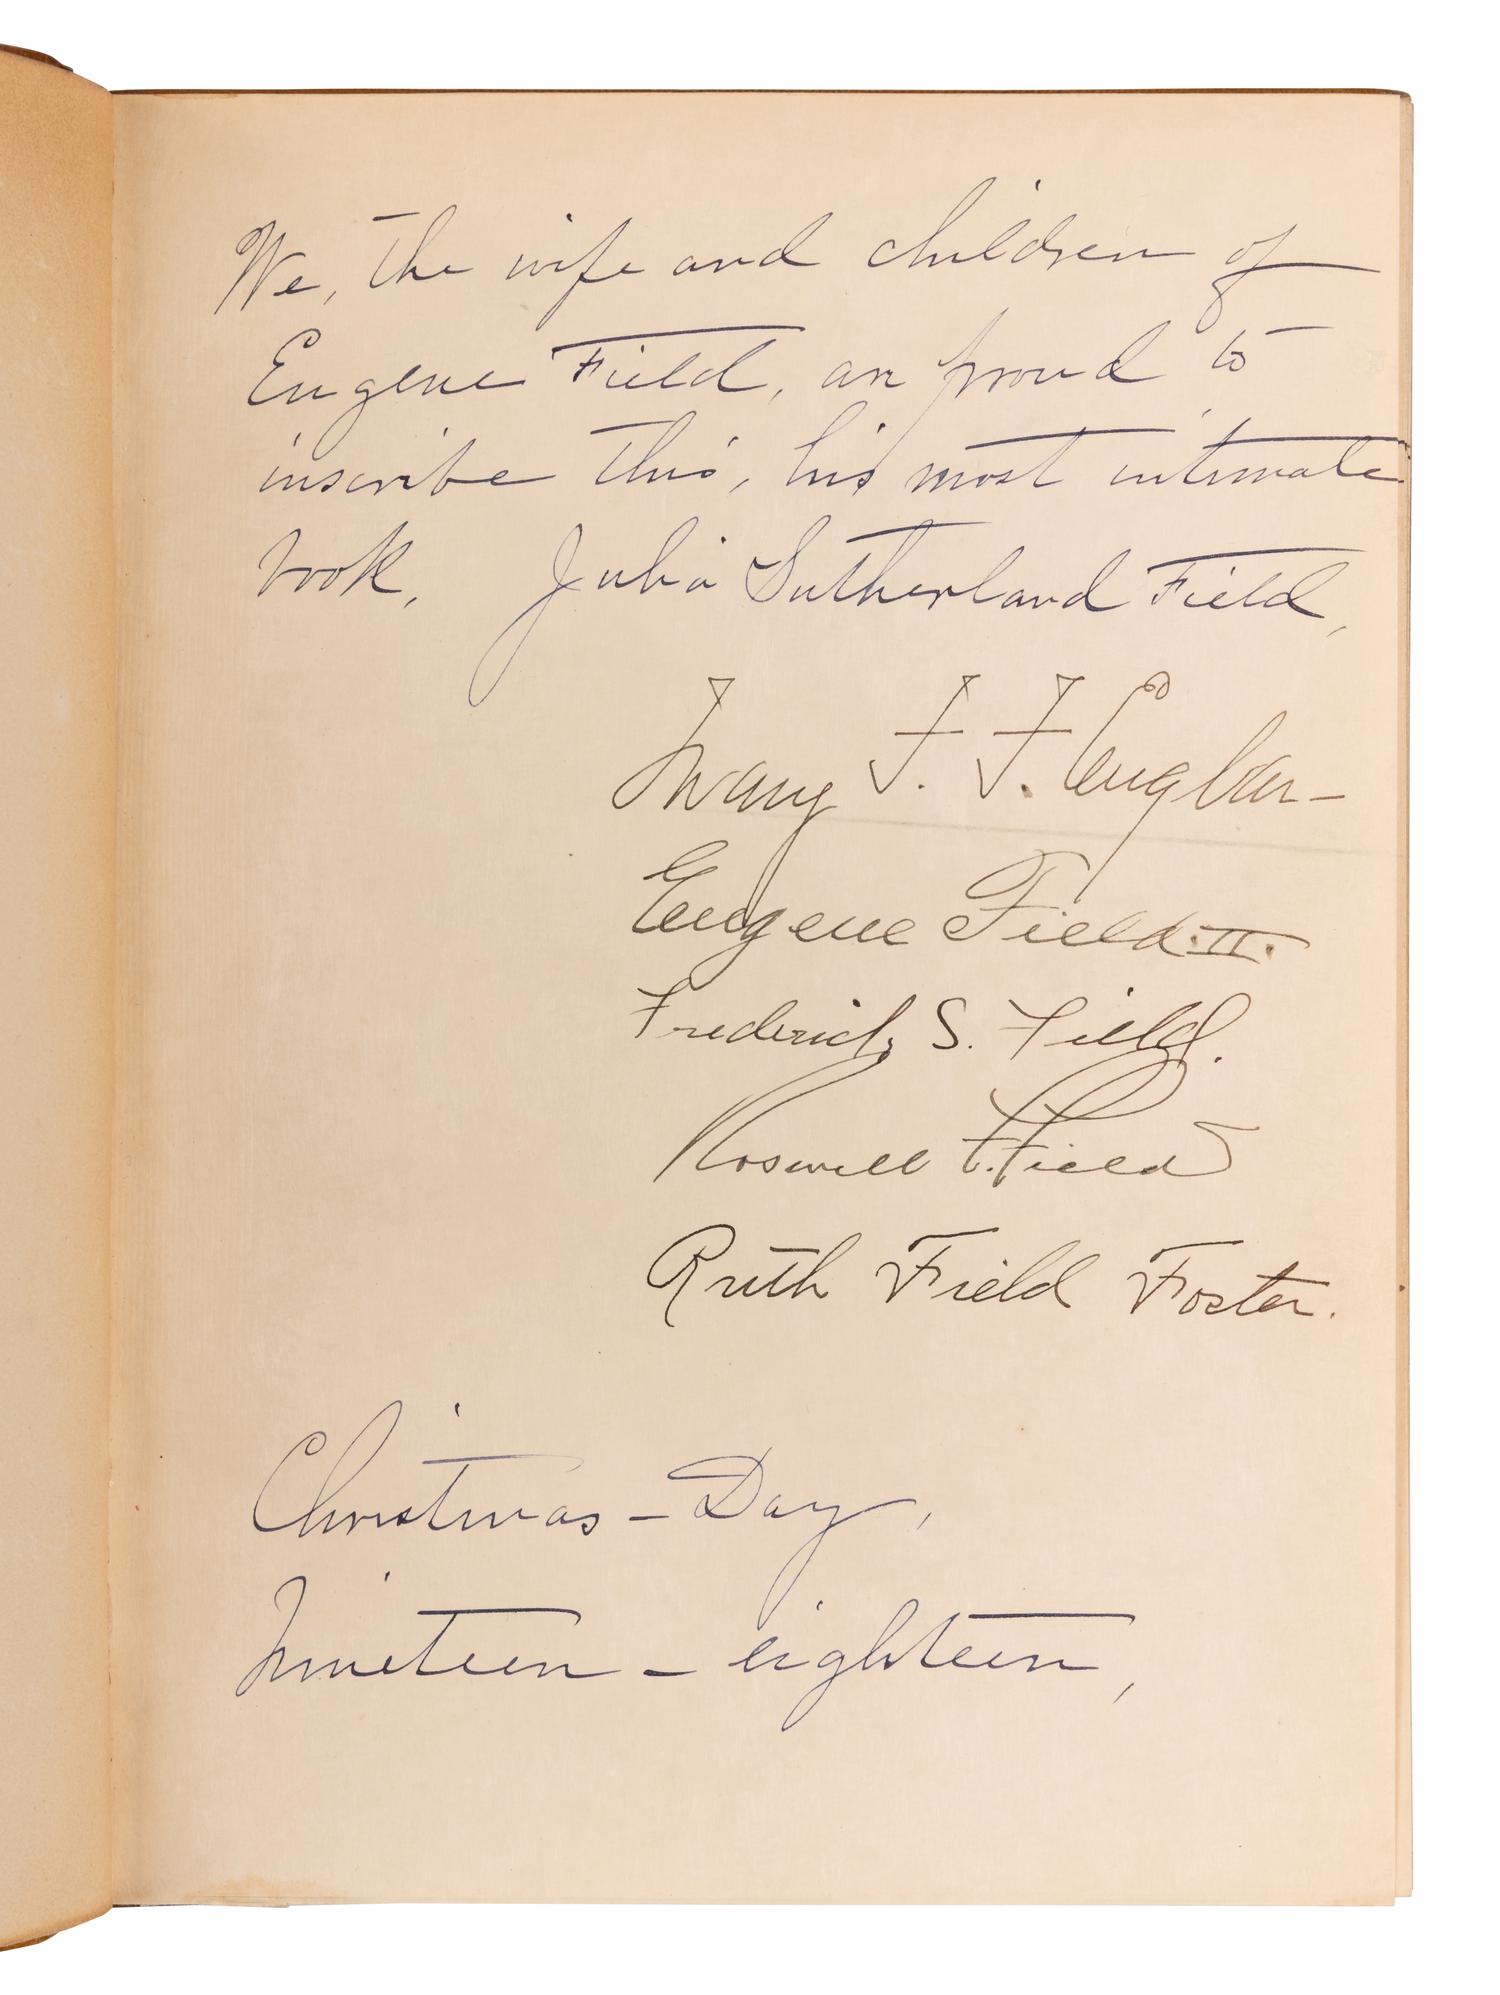 We, the wife and children of
Eugene Field, are proud to
inscribe this, his most intimate
book,   Julia Sutherland Field,
Mary F. F. Englar -
Eugene Field. II.
Frederick S. Field.
Roswell F. Field
Ruth Field Foster.
Christmas - Day,
Nineteen - eighteen,